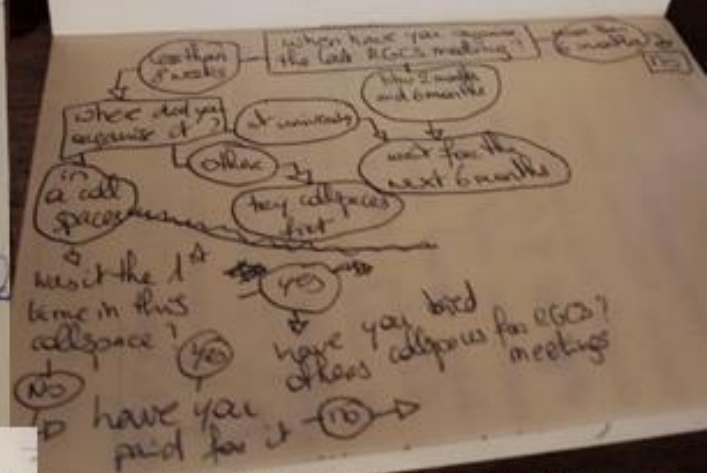 when have you organise
the last RGCS meeting?
less than
8 weeks
more than
6 months
no
2 months
and 6 months
where did you
organise it?
at university
other
wait for the
next 6 months
in
a coll
spaces
try collspaces
first
was it the 1st
time in this
collspace?
yes
yes
have you tried
others collspaces for RGCS?
meetings
No
have you
paid for it
no